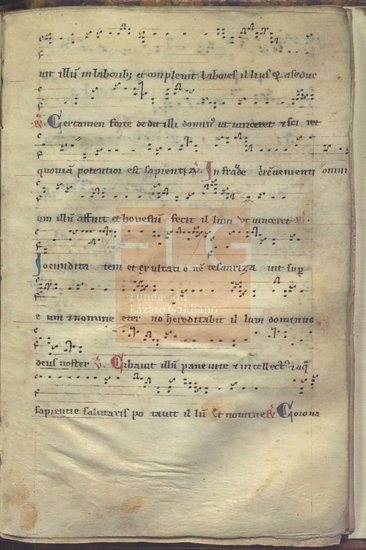 uit illum in laborib; et conpleuit labores illius
Certamen forte dedit illi dominus ut uinceret et sci ret
quoniam potentior est sapientia. In fraude circumuenienti omni
um illum affuit et honestum fecit illum Ut uinceret
Jocundita tem et exultatio nem tesauriza uit sup
e um et nomine eter no hereditabit il lum dominus
FLG
Fundación
Lázaro Galdiano
deus noster Cibauit illum pane uite et intellect
sapientie salutaris po tauit il lum Et nomine Corona